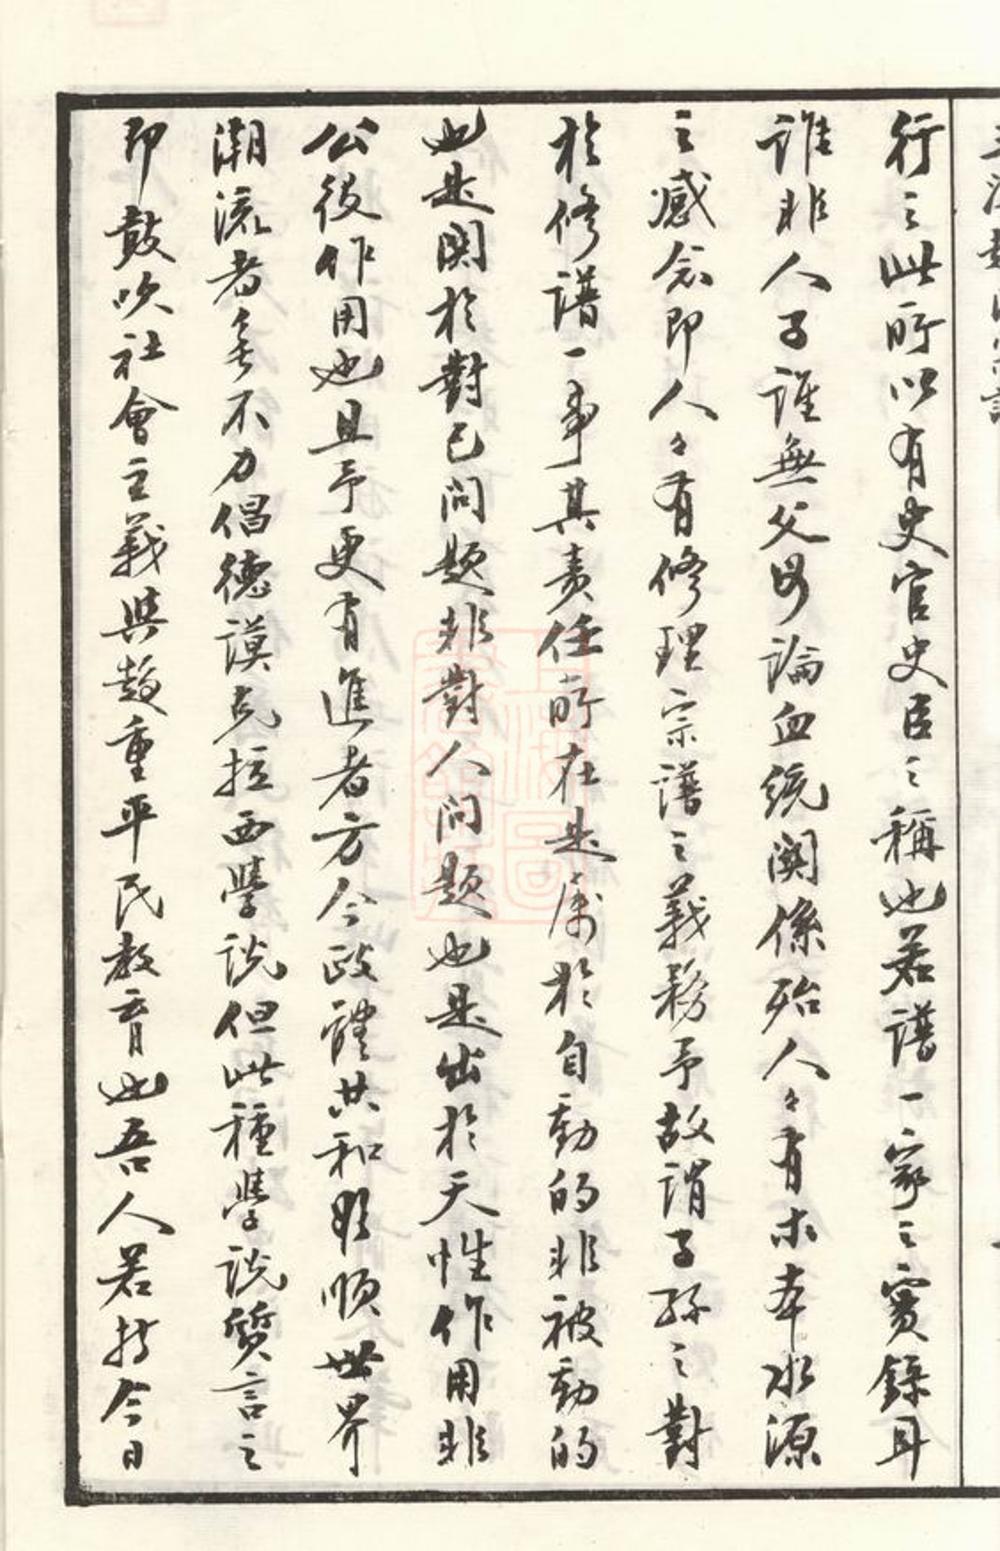 行之此所以有史官史臣之稱也若譜一家之實錄耳
誰非人子誰無父母論血統関係殆人々有木本水源
之感念即人々有修理宗譜之義務予故謂子孫之對
於修譜一事其責任所在是属於自動的非被動的
也是関於對己问題非對人问題也是出於天性作用非
公役作用也且予更有進者方今政體共和順世界
潮流者无不力倡德謨克拉西學説但此種學説质言之
即鼓吹社會主義與趨重平民教育也吾人若持今日